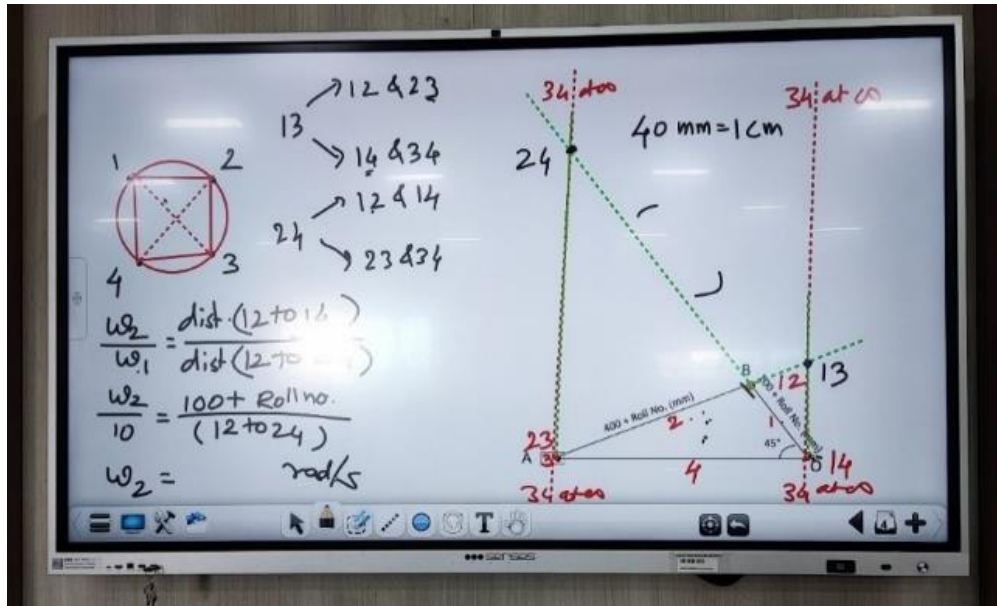 13
12 & 23
14 & 34
24
12 & 14
23 & 34
1
2
4
3
ω2 / ω1 = dist. (12 to 14) / dist (12 to
ω2 / 10 = 100 + Roll no. / (12 to 24)
ω2 = rad/s
34 at ∞
34 at ∞
40 mm = 1 cm
24
B
12
13
400 + Roll No. (mm)
100 + Roll No. (mm)
2
1
45°
23
A
3
4
O
14
34 at ∞
34 at ∞
T
4
senses